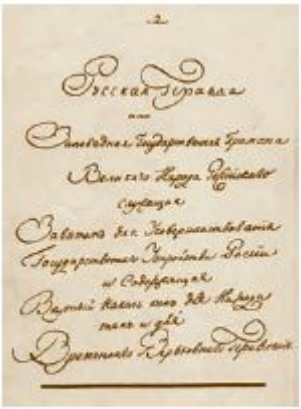 2.
Русская Правда
или
Заповедная Государственная Грамота
Великаго Народа Россійскаго
служащая
Заветом для Усовершенствования
Государственнаго Устройства Россіи
и Содержащая
Верный Наказ как для Народа
так и для
Временнаго Верховнаго Правленія